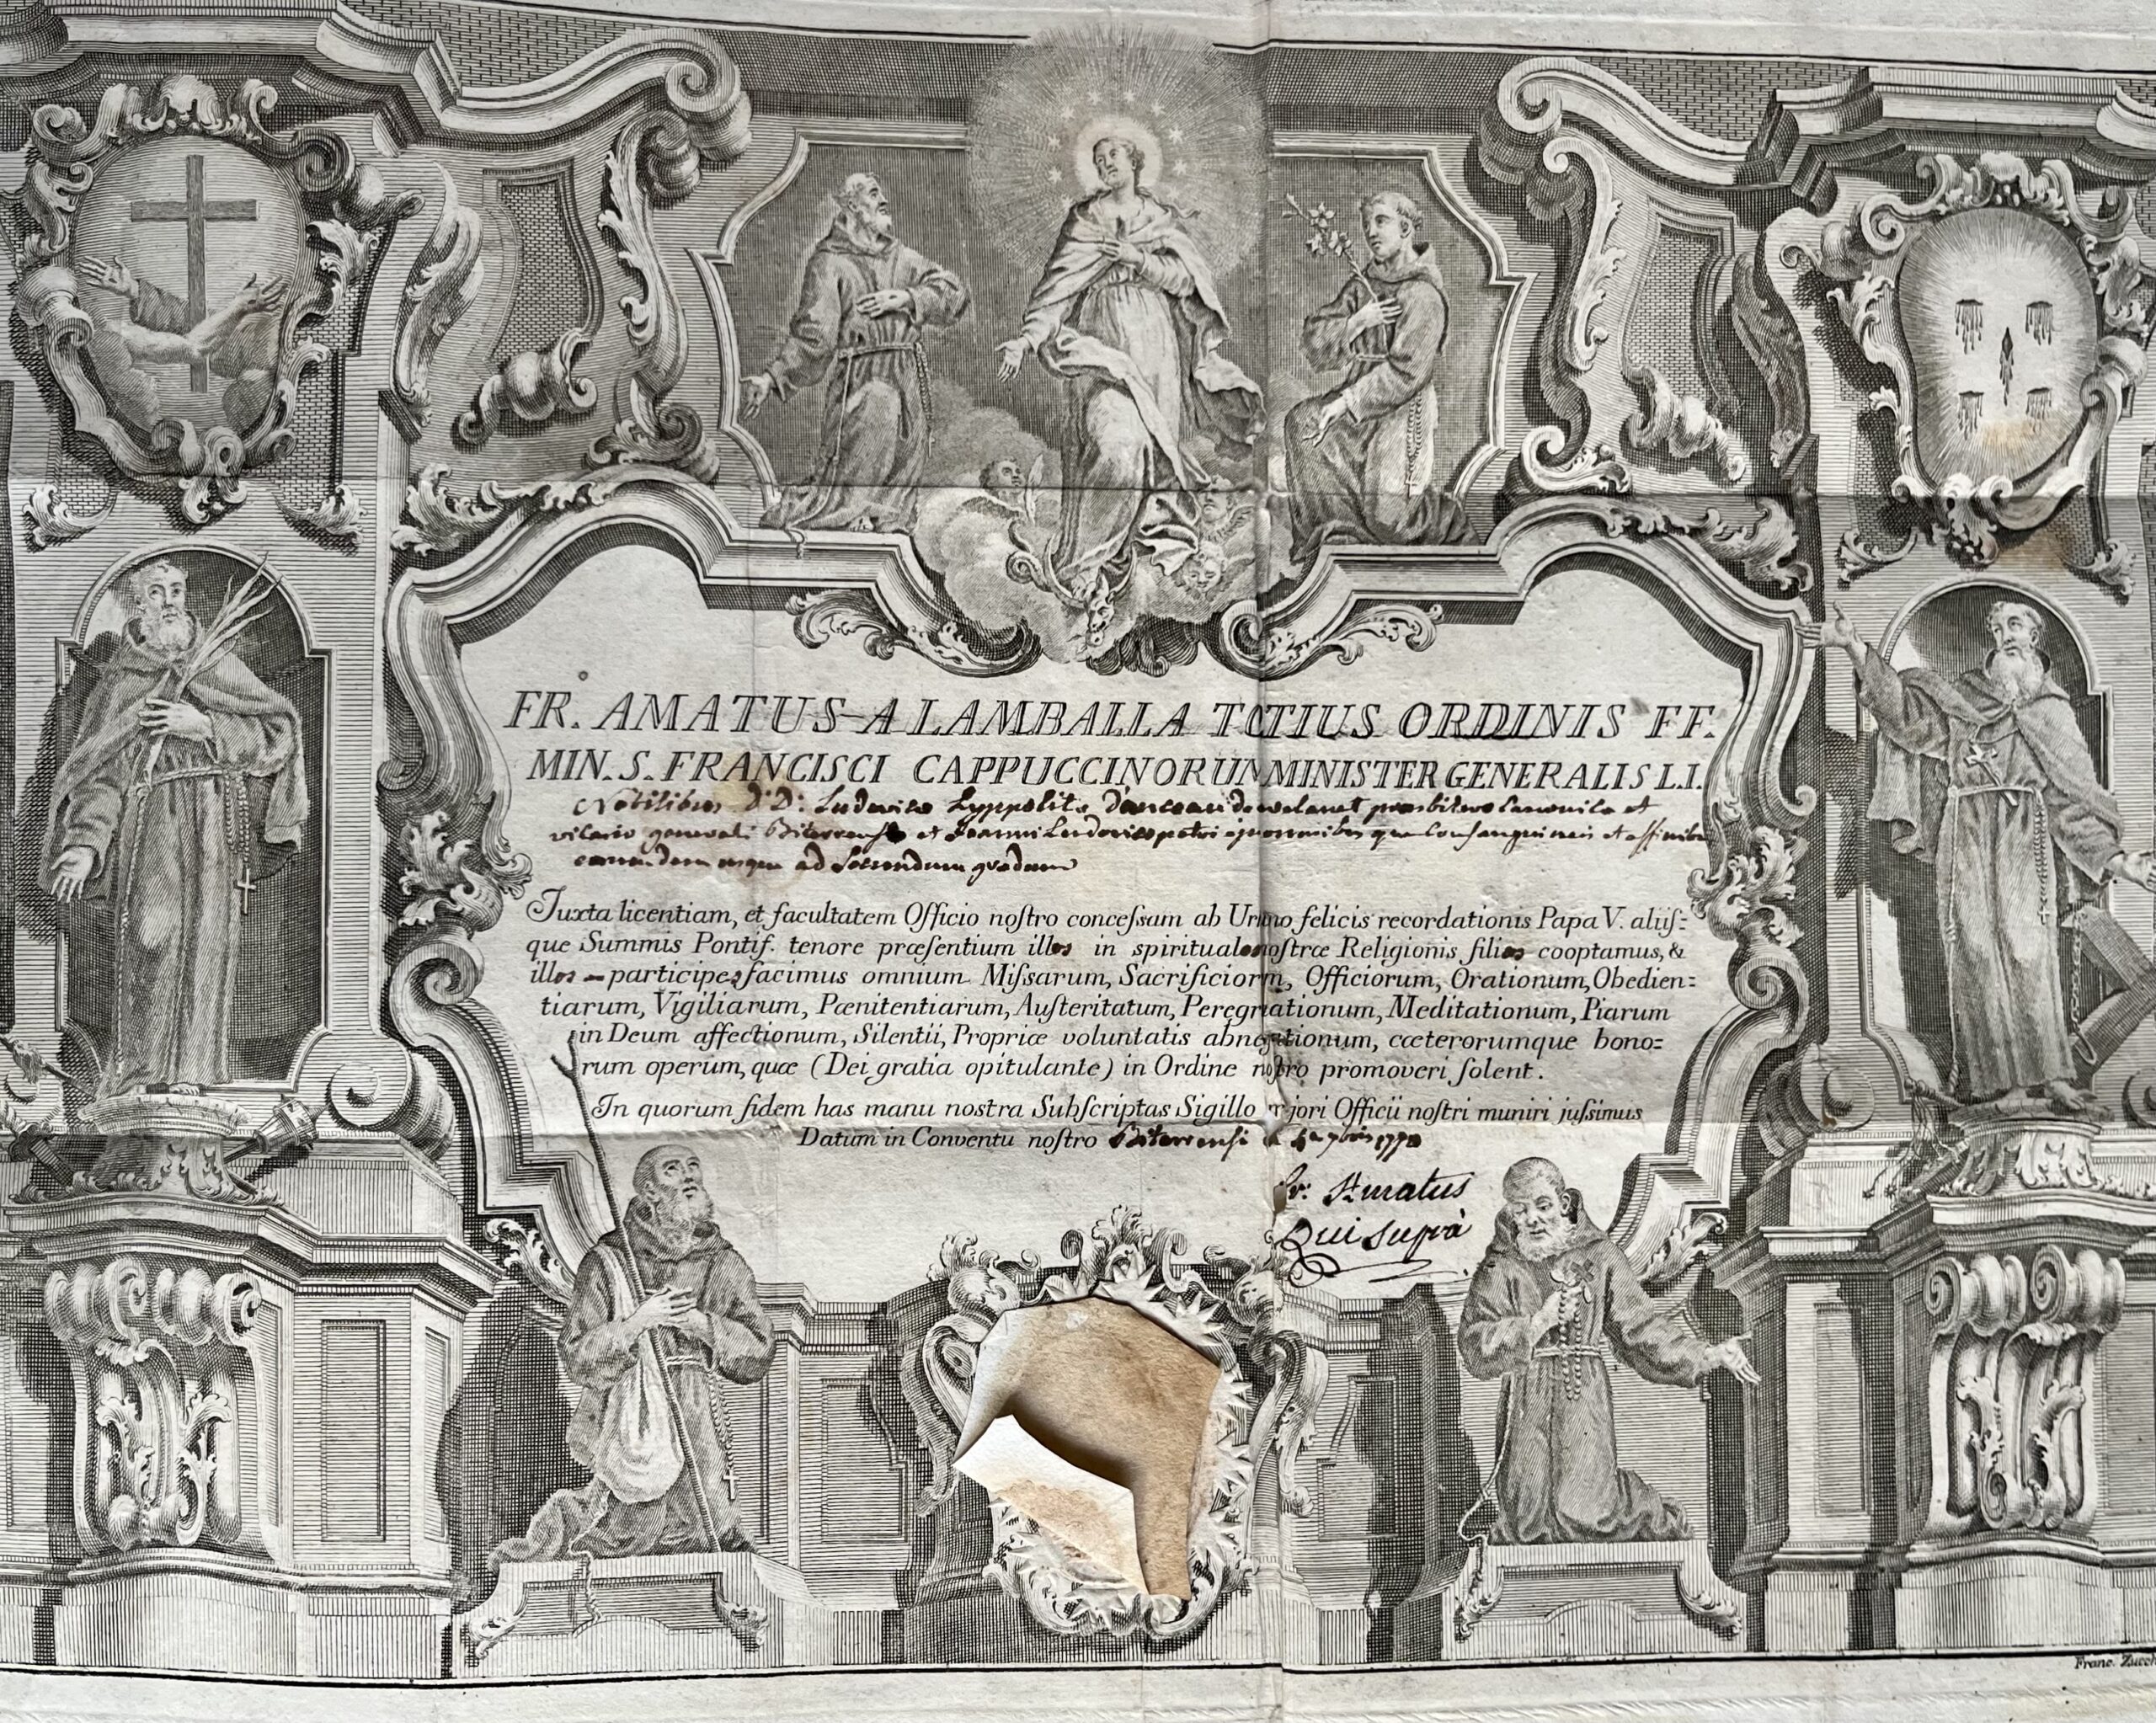 FR. AMATUS A LAMBALLA TOTIUS ORDINIS FF.
MIN. S. FRANCISCI CAPPUCCINORUM MINISTER GENERALIS L.I.
Nobilibus D.D. Ludovico Hyppolito presbitero Canonico et
vicario generali Biterrensi et Joanni Ludovico patri que Consanguineis et affinibus
eorumdem usque ad secundum gradum
Juxta licentiam, et facultatem Officio noſtro conceſsam ab Urbano felicis recordationis Papa V. aliiſ=
que Summis Pontif. tenore præſentium illos in spirituales noſtræ Religionis filios cooptamus, &
illos participes facimus omnium Miſsarum, Sacrificiorum, Officiorum, Orationum, Obedien=
tiarum, Vigiliarum, Pœnitentiarum, Auſteritatum, Peregrinationum, Meditationum, Piarum
in Deum affectionum, Silentii, Propriæ voluntatis abnegationum, cœterorumque bono=
rum operum, quæ (Dei gratia opitulante) in Ordine noſtro promoveri ſolent.
In quorum fidem has manu nostra Subſcriptas Sigillo majori Officii noſtri muniri juſsimus
Datum in Conventu noſtro Biterrensi 7bris
fr: Amatus
Qui suprà
Franc. Zucch